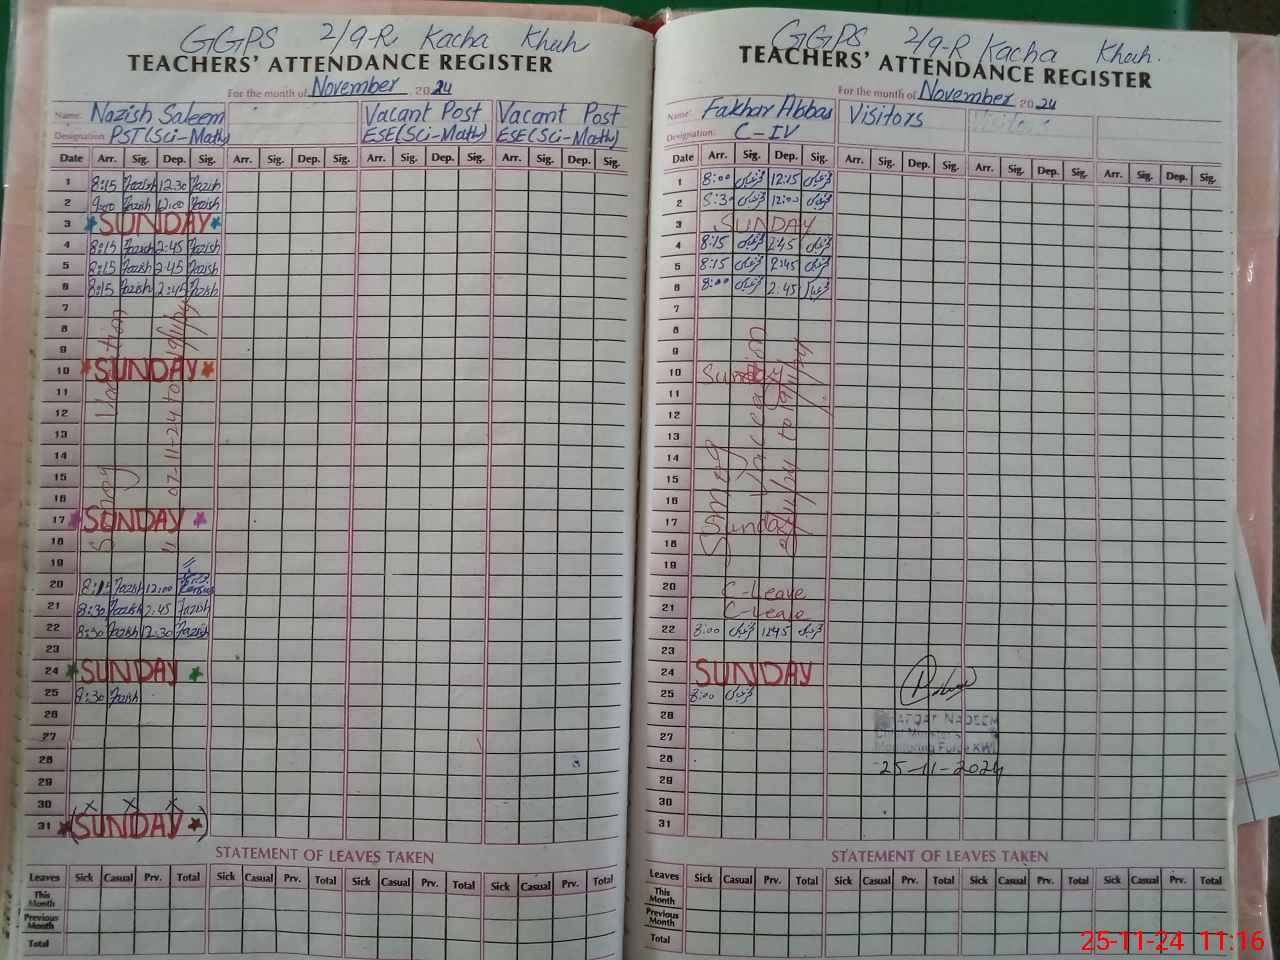 GGPS 2/9-R Kacha Khuh
TEACHERS' ATTENDANCE REGISTER
For the month of November 2024
Name: Nazish Saleem Vacant Post Vacant Post
Designation: PST(Sci-Math) ESE(Sci-Math) ESE(Sci-Math)
Date Arr. Sig. Dep. Sig. Arr. Sig. Dep. Sig. Arr. Sig. Dep. Sig. Arr. Sig. Dep. Sig.
1 8:15 Nazish 12:30 Nazish
2 9:00 Nazish 12:00 Nazish
3 SUNDAY
4 8:15 Nazish 2:45 Nazish
5 8:15 Nazish 2:45 Nazish
6 8:15 Nazish 2:45 Nazish
7
8
9
10 SUNDAY
11
12
13
14
15
16
17 SUNDAY
18
19
Smog Vacation
07-11-24 to 19/11/24
20 8:15 Nazish 12:00
21 8:30 Nazish 2:45 Nazish
22 8:30 Nazish 12:30 Nazish
23
24 SUNDAY
25 8:30 Nazish
26
27
28
29
30
31 (SUNDAY)
STATEMENT OF LEAVES TAKEN
Leaves Sick Casual Prv. Total Sick Casual Prv. Total Sick Casual Prv. Total Sick Casual Prv. Total
This Month
Previous Month
Total
GGPS 2/9-R Kacha Khuh.
TEACHERS' ATTENDANCE REGISTER
For the month of November 2024
Name: Fakhar Abbas Visitors Visitors
Designation: C-IV
Date Arr. Sig. Dep. Sig. Arr. Sig. Dep. Sig. Arr. Sig. Dep. Sig. Arr. Sig. Dep. Sig.
1 8:00 12:15
2 8:30 12:00
3 SUNDAY
4 8:15 2:45
5 8:15 2:45
6 8:00 2:45
7
8
9
10 Sunday
11
12
13
14
15
16
17 Sunday
18
19
Smog Vaccation
to 19/11/24
20 C-Leave
21 C-Leave
22 8:00 1245
23
24 SUNDAY
25 8:00
26
27
28
29
30
31
NADEEM
Chief Minister's
Monitoring Force KWL
25-11-2024
STATEMENT OF LEAVES TAKEN
Leaves Sick Casual Prv. Total Sick Casual Prv. Total Sick Casual Prv. Total Sick Casual Prv. Total
This Month
Previous Month
Total
25-11-24 11:16